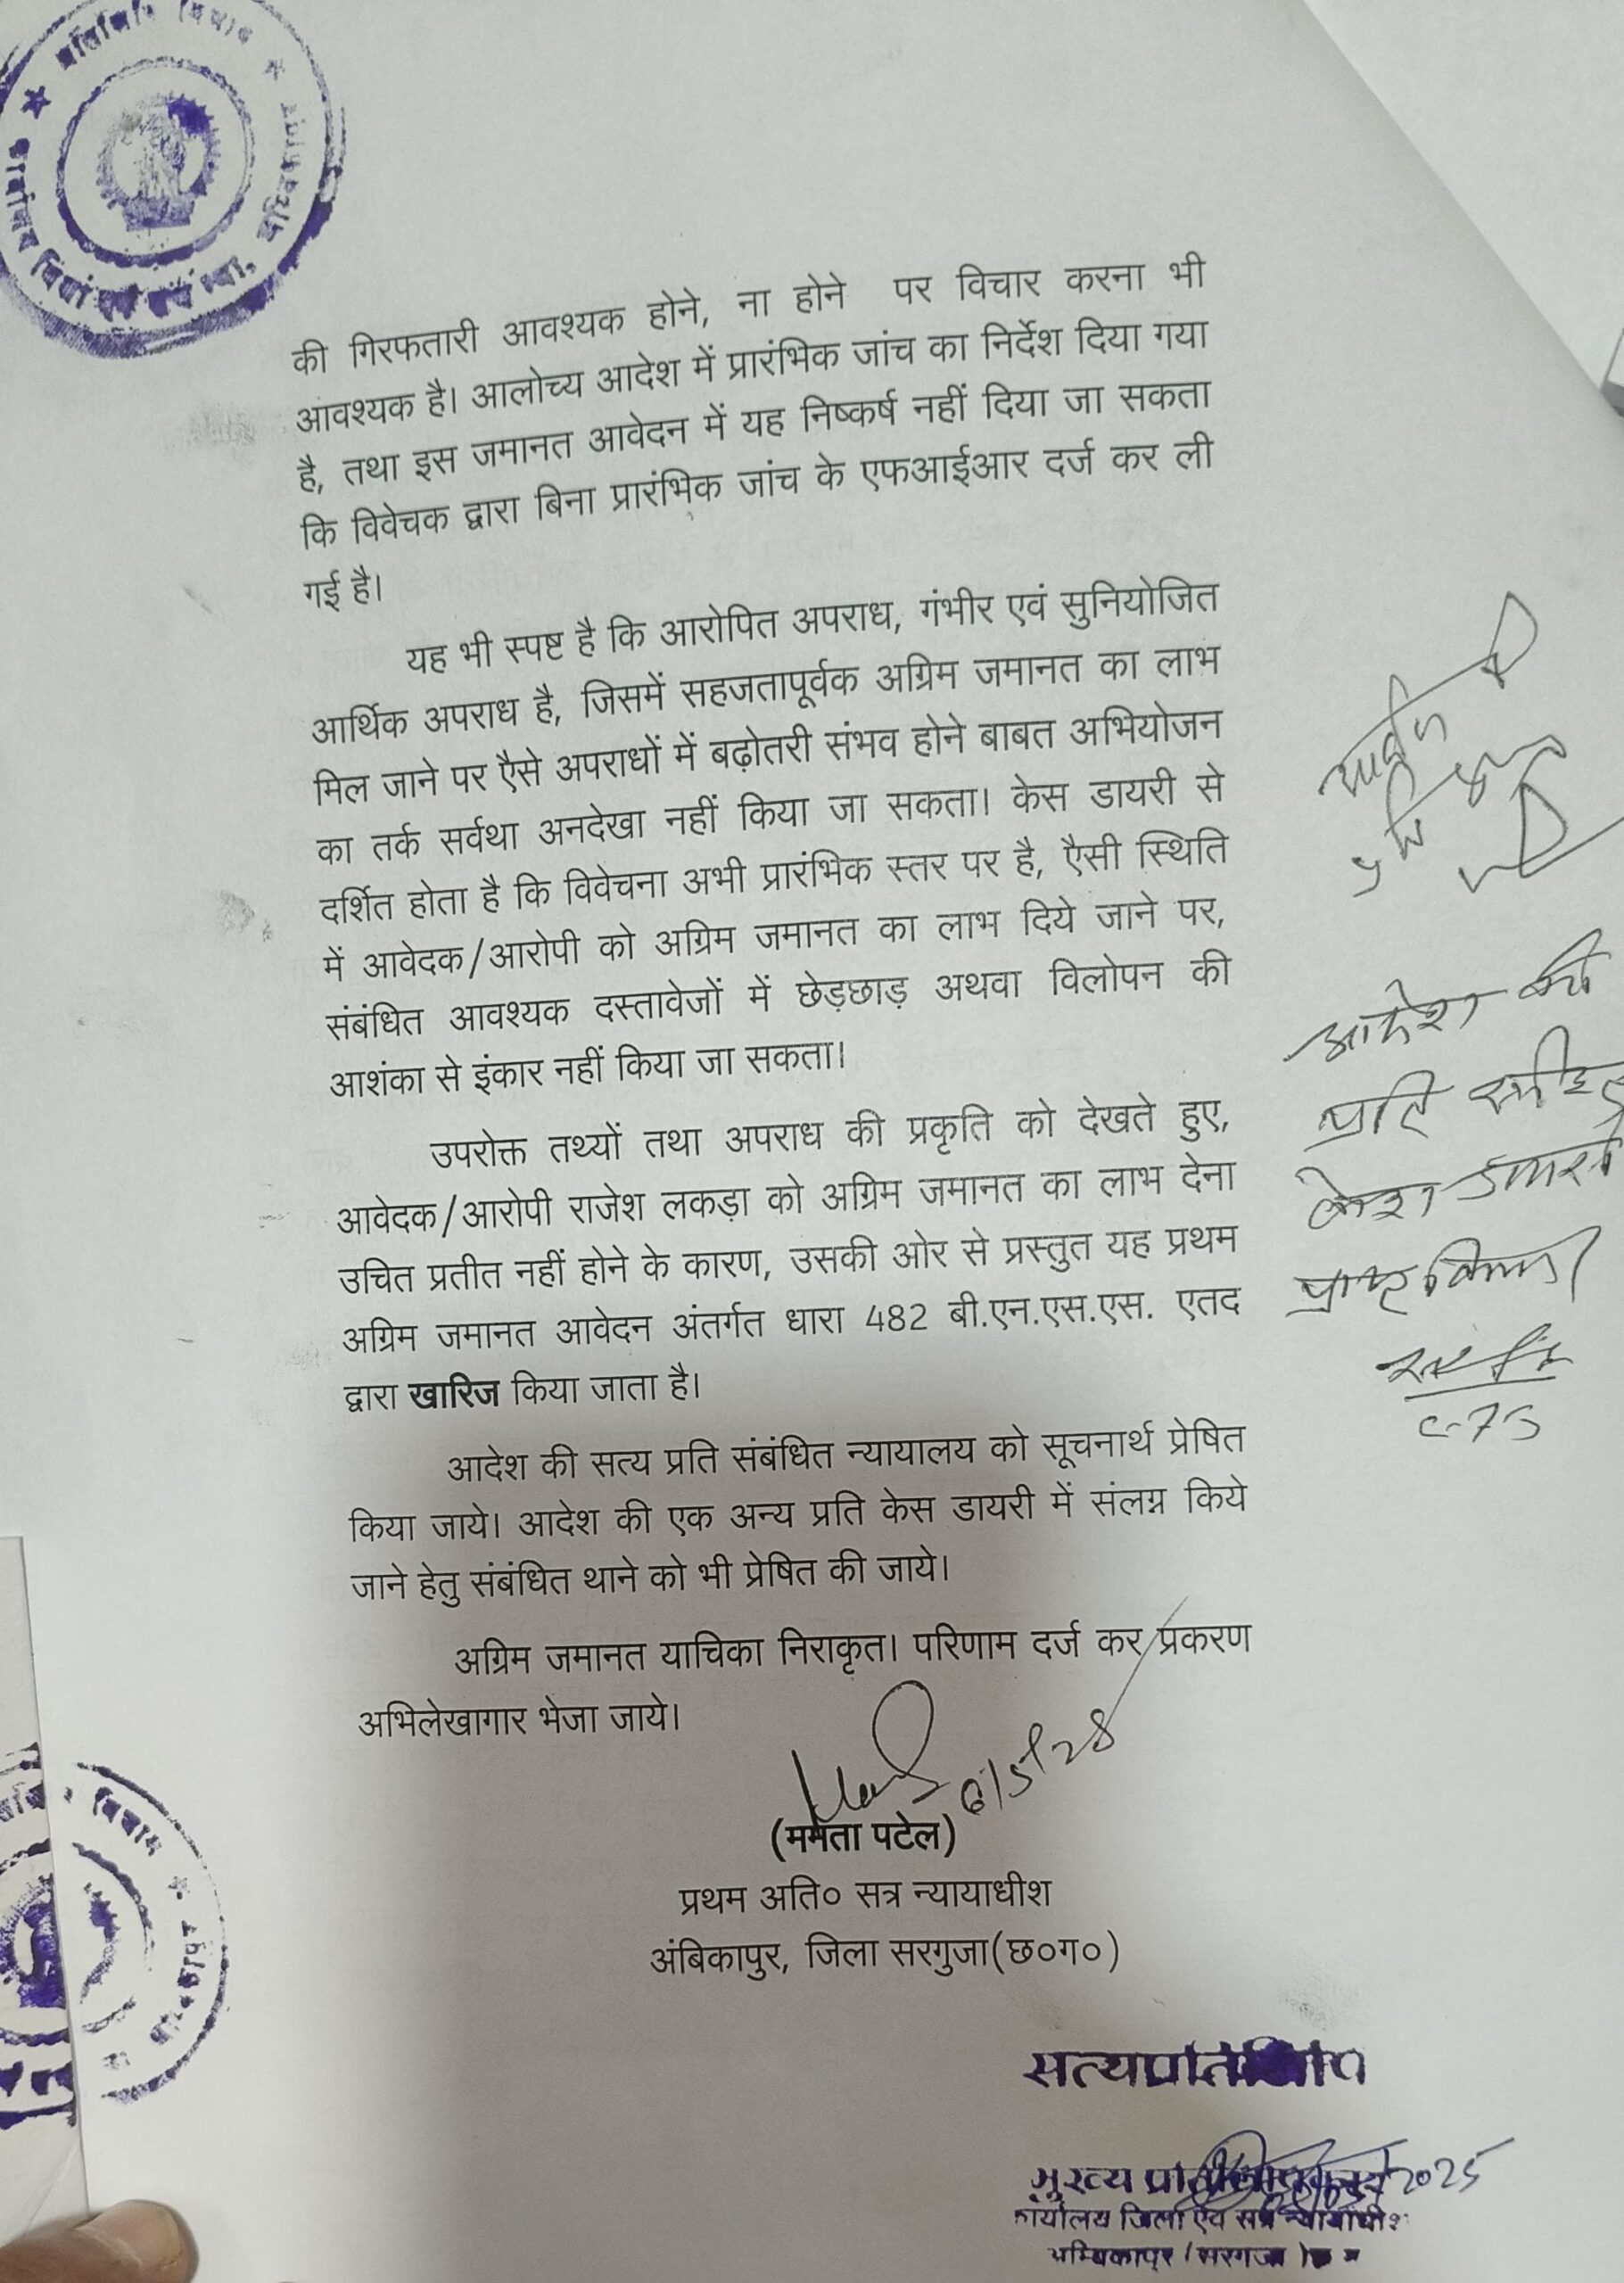 प्रतिलिपि विभाग
की गिरफतारी आवश्यक होने, ना होने पर विचार करना भी
आवश्यक है। आलोच्य आदेश में प्रारंभिक जांच का निर्देश दिया गया
है, तथा इस जमानत आवेदन में यह निष्कर्ष नहीं दिया जा सकता
कि विवेचक द्वारा बिना प्रारंभिक जांच के एफआईआर दर्ज कर ली
गई है।
यह भी स्पष्ट है कि आरोपित अपराध, गंभीर एवं सुनियोजित
आर्थिक अपराध है, जिसमें सहजतापूर्वक अग्रिम जमानत का लाभ
मिल जाने पर एैसे अपराधों में बढ़ोतरी संभव होने बाबत अभियोजन
का तर्क सर्वथा अनदेखा नहीं किया जा सकता। केस डायरी से
दर्शित होता है कि विवेचना अभी प्रारंभिक स्तर पर है, एैसी स्थिति
में आवेदक/आरोपी को अग्रिम जमानत का लाभ दिये जाने पर,
संबंधित आवश्यक दस्तावेजों में छेड़छाड़ अथवा विलोपन की
आशंका से इंकार नहीं किया जा सकता।
उपरोक्त तथ्यों तथा अपराध की प्रकृति को देखते हुए,
आवेदक/आरोपी राजेश लकड़ा को अग्रिम जमानत का लाभ देना
उचित प्रतीत नहीं होने के कारण, उसकी ओर से प्रस्तुत यह प्रथम
अग्रिम जमानत आवेदन अंतर्गत धारा 482 बी.एन.एस.एस. एतद
द्वारा खारिज किया जाता है।
आदेश की सत्य प्रति संबंधित न्यायालय को सूचनार्थ प्रेषित
किया जाये। आदेश की एक अन्य प्रति केस डायरी में संलग्न किये
जाने हेतु संबंधित थाने को भी प्रेषित की जाये।
अग्रिम जमानत याचिका निराकृत। परिणाम दर्ज कर प्रकरण
अभिलेखागार भेजा जाये।
(ममता पटेल)
प्रथम अति० सत्र न्यायाधीश
अंबिकापुर, जिला सरगुजा(छ०ग०)
आदेश की
प्रति
केश डायरी
प्राप्त किया
सत्यप्रतिलिपि
मुख्य 2025
कार्यालय जिला एवं सत्र न्यायाधीश
अम्बिकापुर